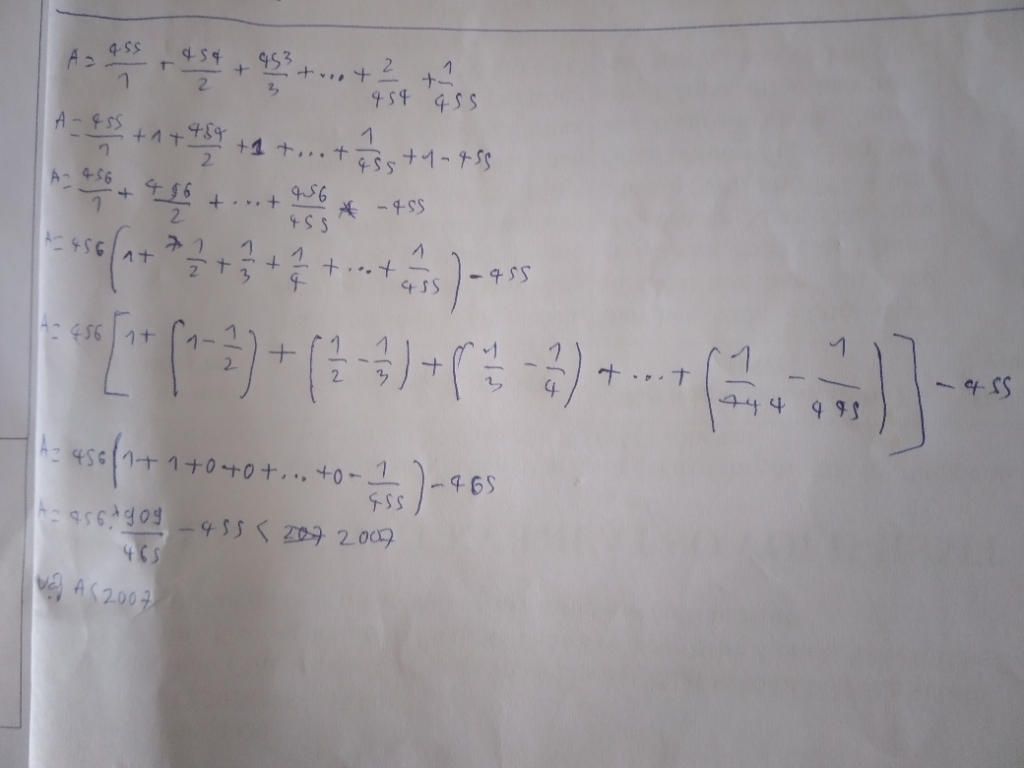 A = 455/1 + 454/2 + 453/3 + ... + 2/454 + 1/455
A = 455/1 + 1 + 454/2 + 1 + ... + 1/455 + 1 - 455
A = 456/1 + 456/2 + ... + 456/455 - 455
A = 456 (1 + 1/2 + 1/3 + 1/4 + ... + 1/455) - 455
A = 456 [1 + (1 - 1/2) + (1/2 - 1/3) + (1/3 - 1/4) + ... + (1/444 - 1/455)] - 455
A = 456 (1 + 1 + 0 + 0 + ... + 0 - 1/455) - 465
A = 456. 909/465 - 455 < 2007
Vậy A < 2007